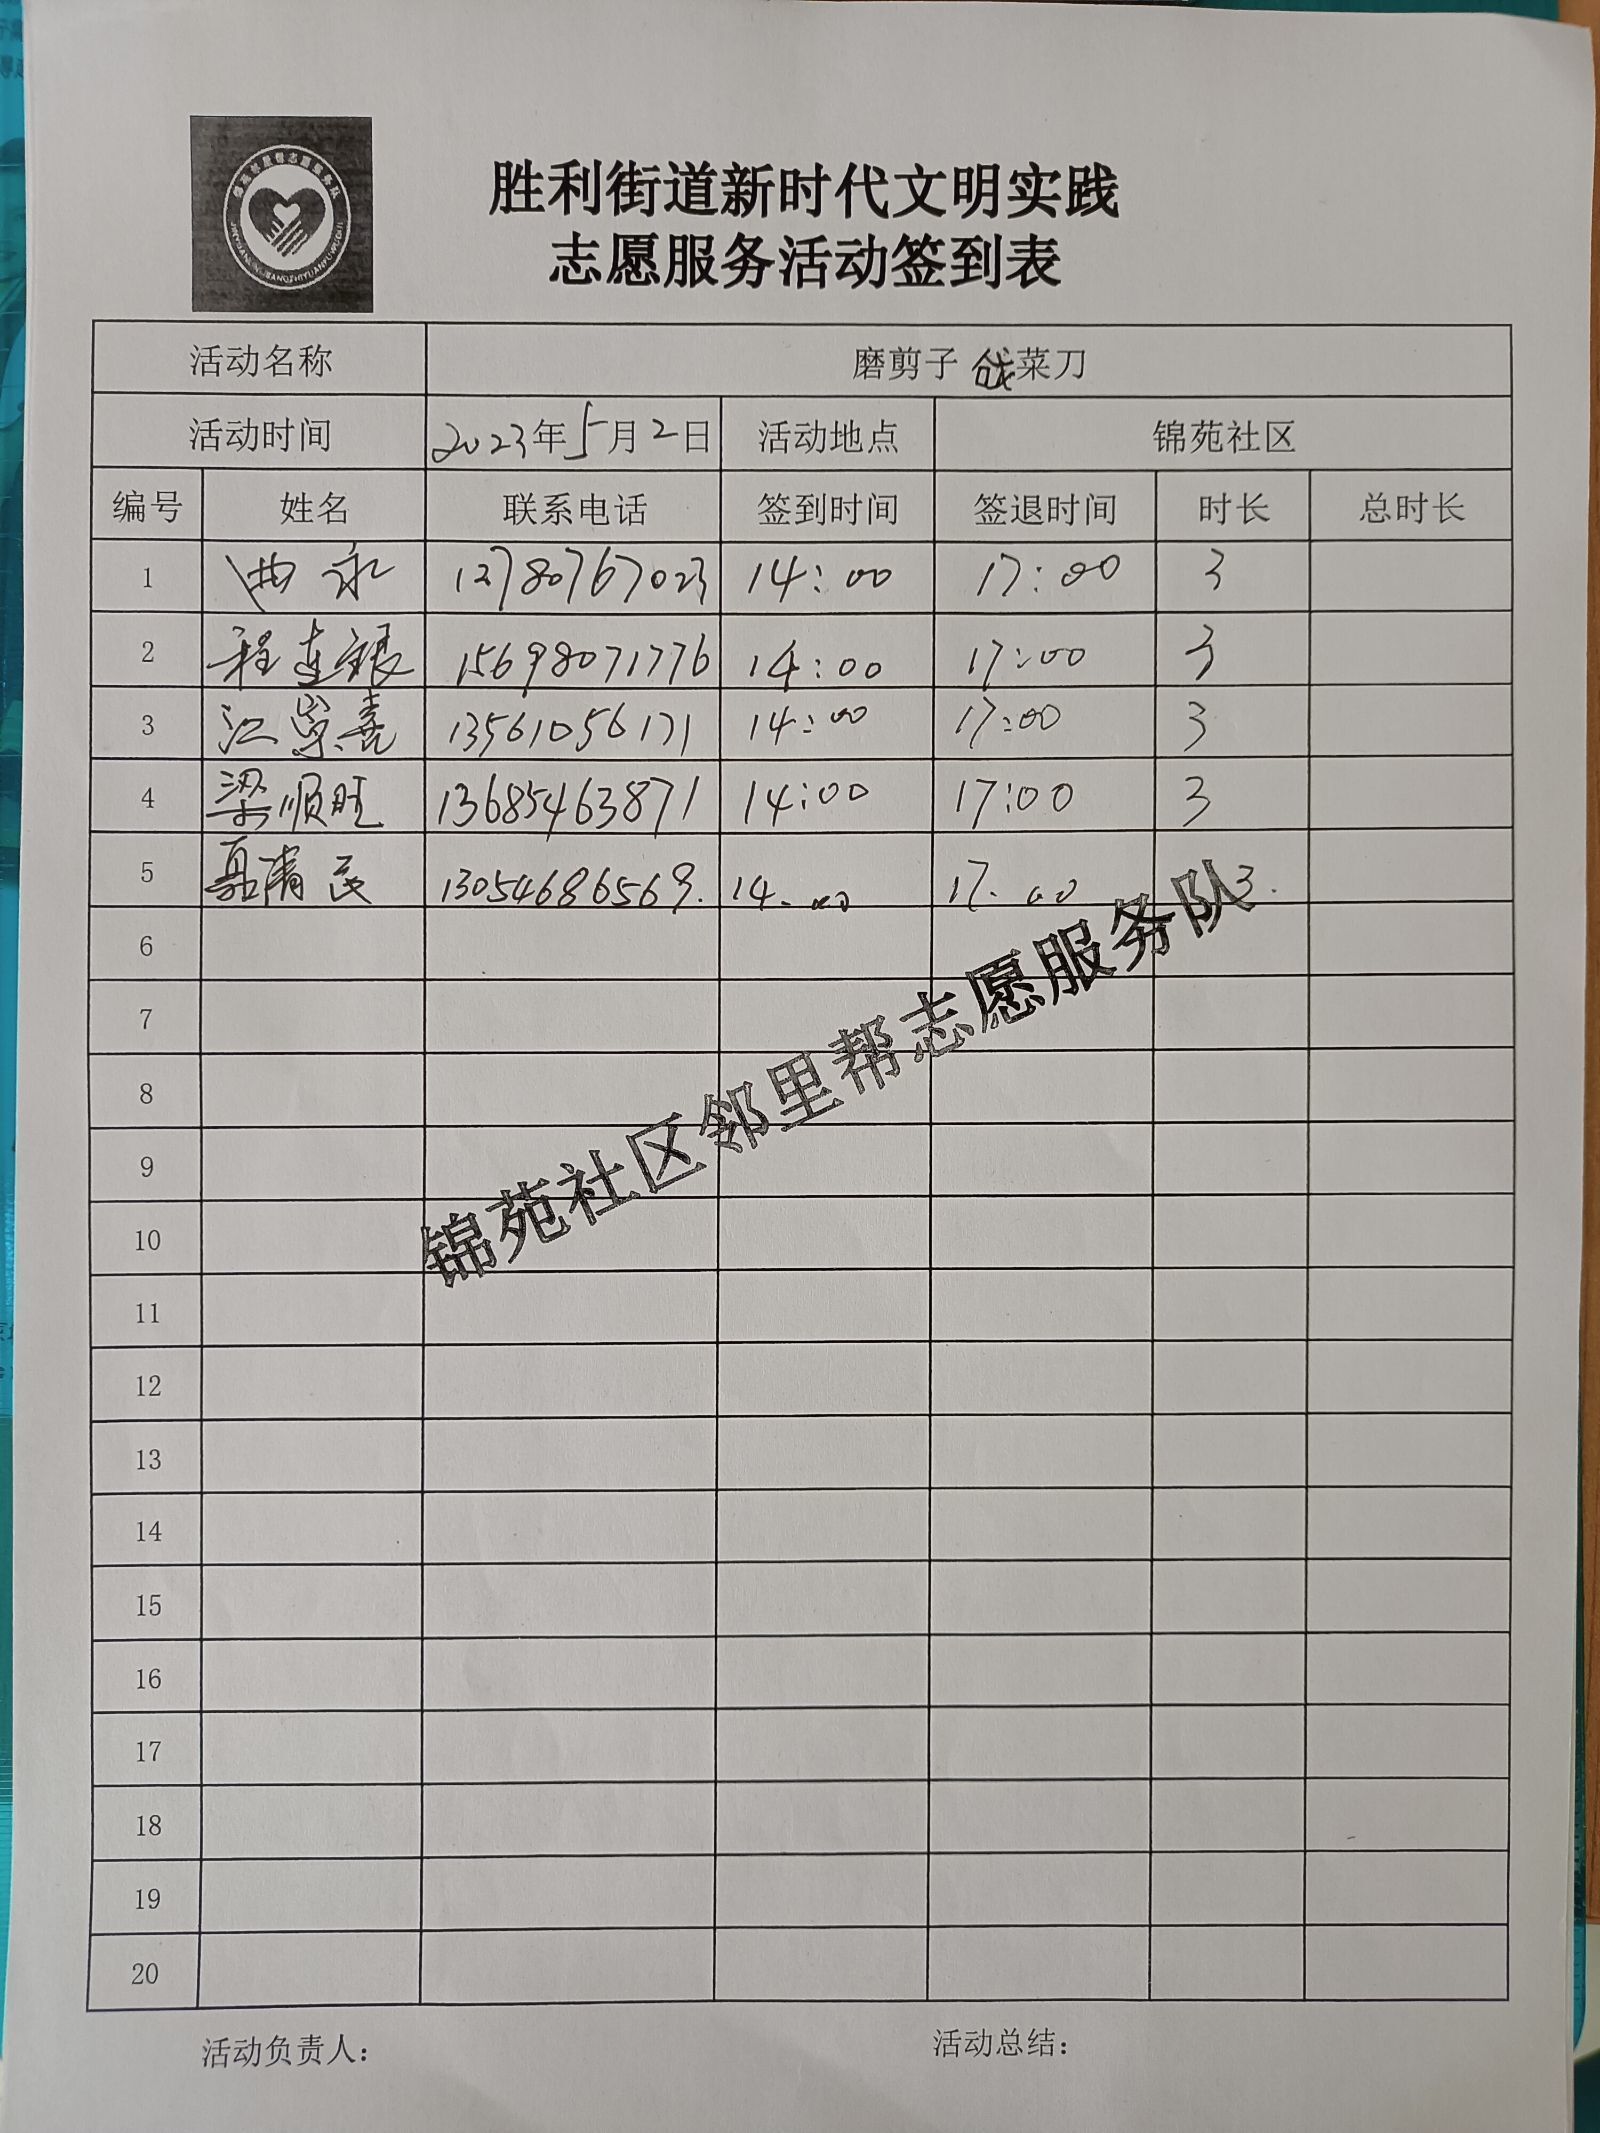 胜利街道新时代文明实践
志愿服务活动签到表
活动名称 磨剪子 戗菜刀
活动时间 2023年5月2日 活动地点 锦苑社区
编号 姓名 联系电话 签到时间 签退时间 时长 总时长
1 曲永 12780767023 14:00 17:00 3
2 程连银 15698071776 14:00 17:00 3
3 江崇喜 13561056171 14:00 17:00 3
4 梁顺旺 13685463871 14:00 17:00 3
5 聂清民 13054686569. 14.00 17.00 3.
6
7
8
9
10
11
12
13
14
15
16
17
18
19
20
锦苑社区邻里帮志愿服务队
活动负责人： 活动总结：